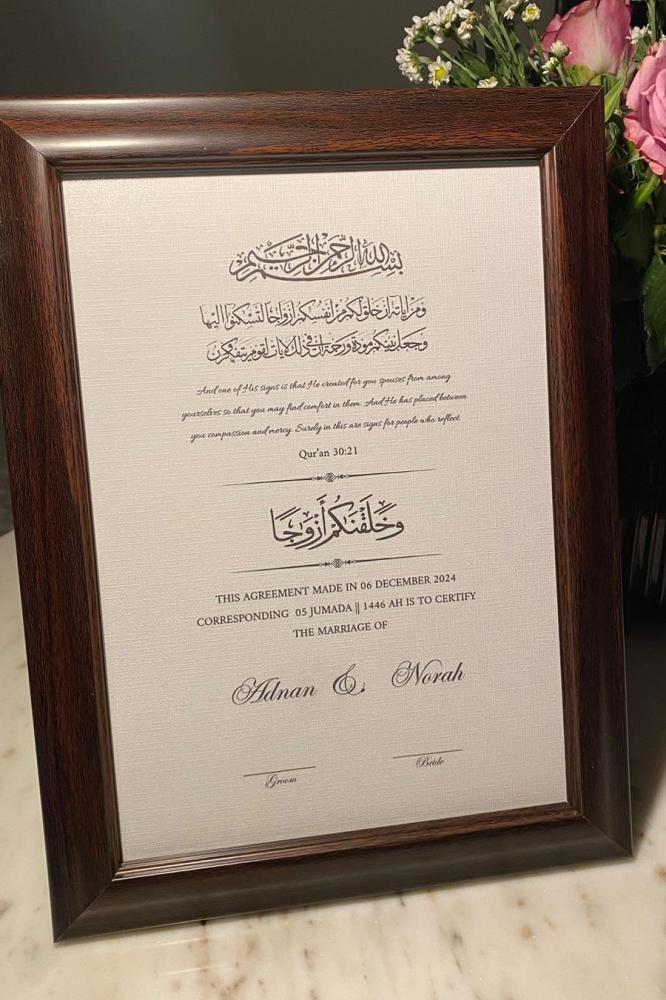 بسم الله الرحمن الرحيم
ومن آياته أن خلق لكم من أنفسكم أزواجا لتسكنوا إليها
وجعل بينكم مودة ورحمة إن في ذلك لآيات لقوم يتفكرون
And one of His signs is that He created for you spouses from among
yourselves so that you may find comfort in them. And He has placed between
you compassion and mercy. Surely in this are signs for people who reflect.
Qur'an 30:21
وَخَلَقْنَكُمْ أَزْوَجًا
THIS AGREEMENT MADE IN 06 DECEMBER 2024
CORRESPONDING 05 JUMADA || 1446 AH IS TO CERTIFY
THE MARRIAGE OF
Adnan & Norah
Groom Bride